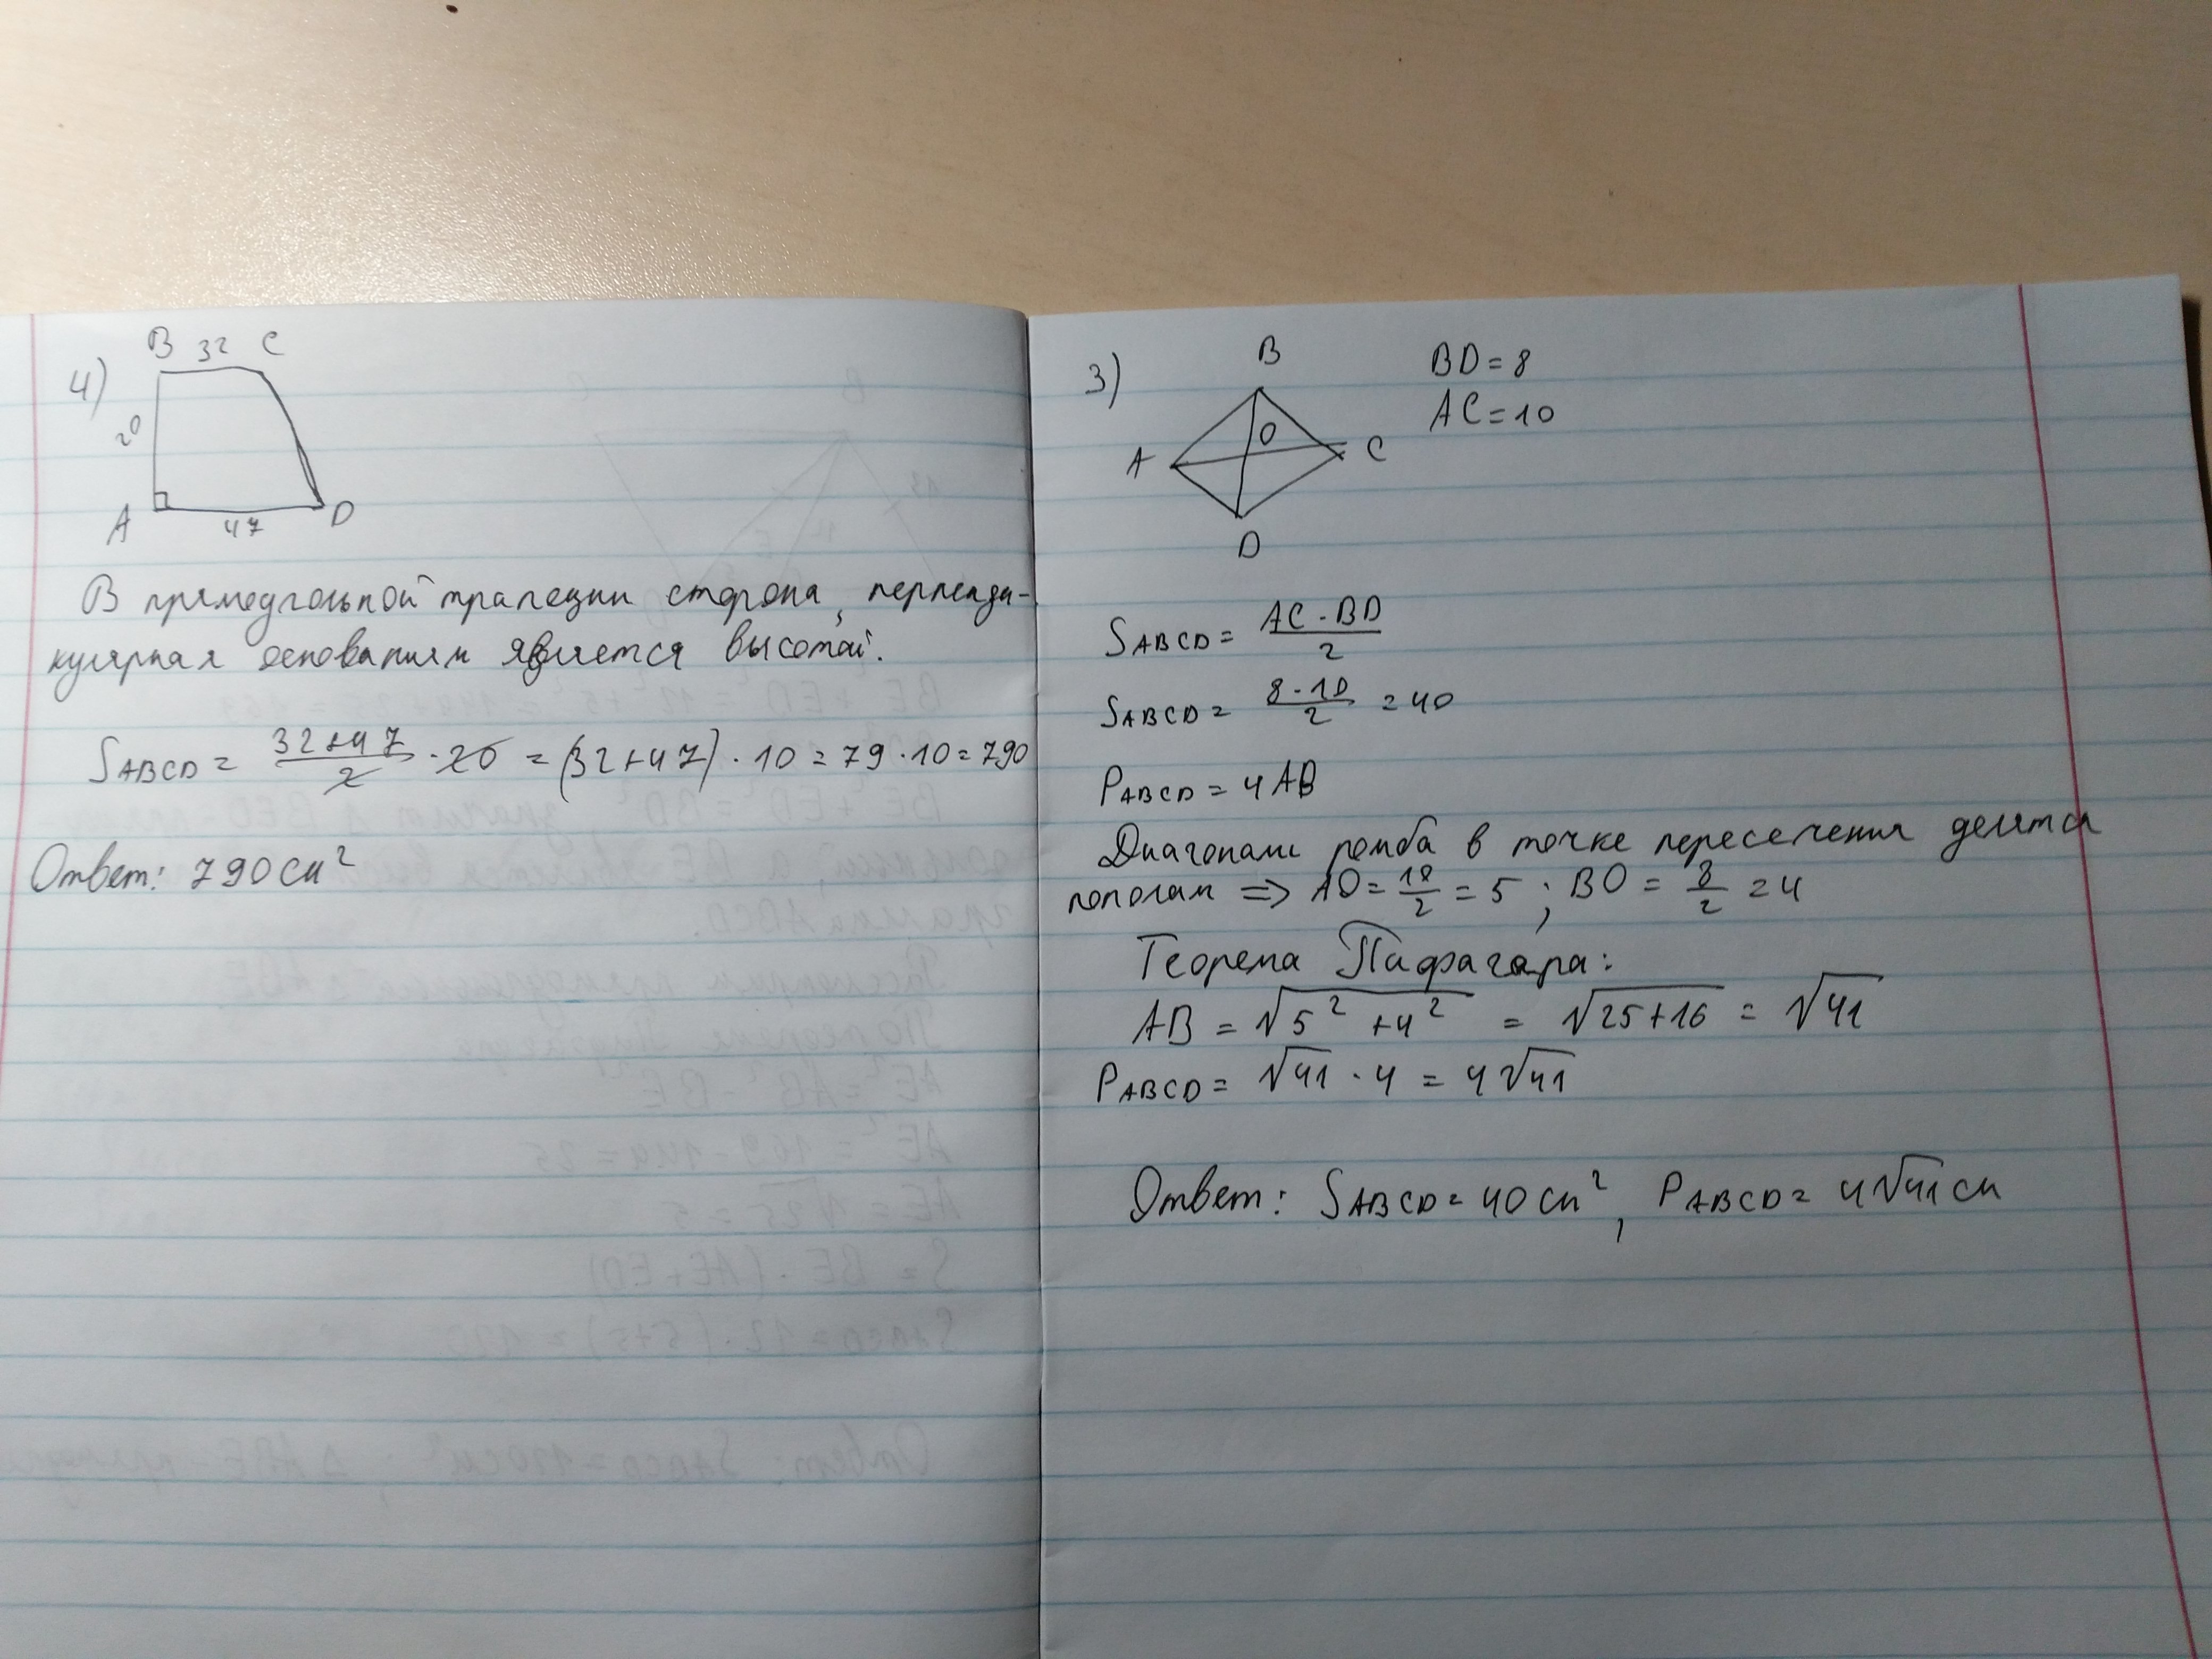 4)
B 32 C
20
A 47 D
В прямоугольной трапеции сторона, перпенди-
кулярная основаниям является высотой.
S ABCD = 32+47/2 · 20 = (32+47) · 10 = 79 · 10 = 790
Ответ: 790 см²
3)
B
BD = 8
AC = 10
O
A C
D
S ABCD = AC · BD/2
S ABCD = 8 · 10/2 = 40
P ABCD = 4 AB
Диагонали ромба в точке пересечения делятся
пополам => AO = 10/2 = 5 ; BO = 8/2 = 4
Теорема Пифагора:
AB = √5² + 4² = √25+16 = √41
P ABCD = √41 · 4 = 4√41
Ответ: S ABCD = 40 см², P ABCD = 4√41 см